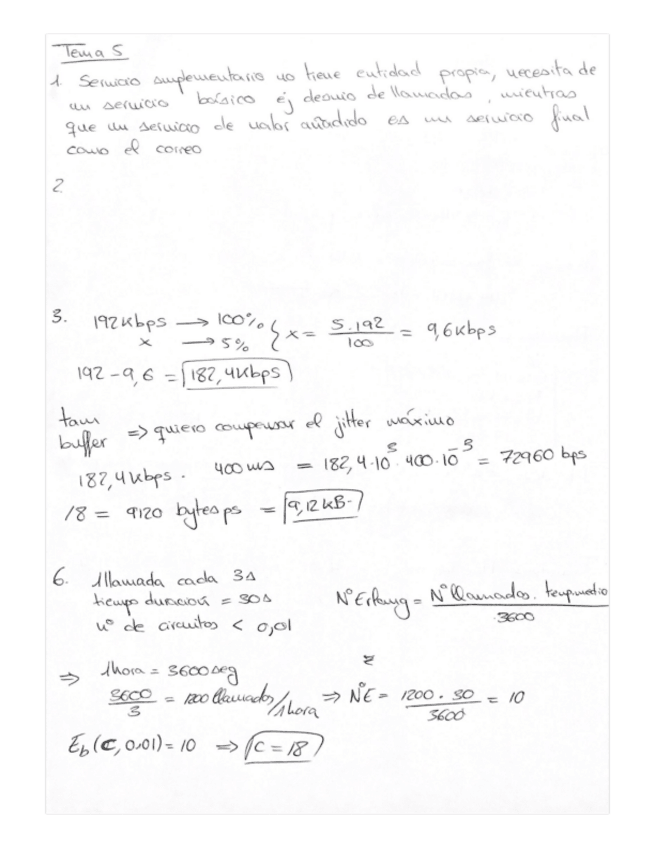 Tema 5
1. Servicio suplementario no tiene entidad propia, necesita de
un servicio básico ej desvio de llamadas, mientras
que un servicio de valor añadido es un servicio final
como el correo
2
3. 192 Kbps → 100% } x = 5.192 / 100 = 9,6 Kbps
x → 5%
192 - 9,6 = 182,4 Kbps
tam buffer ⇒ quiero compensar el jitter máximo
182,4 Kbps . 400 ms = 182,4·10³·400·10⁻³ = 72960 bps
/8 = 9120 bytes ps = 9,12 kB
6. 1 llamada cada 3s
tiempo duración = 30s
nº de circuitos < 0,01
Nº Erlang = Nº llamadas . temp.medio / 3600
⇒ 1 hora = 3600 seg
3600 / 3 = 1200 llamadas/1 hora ⇒ NºE = 1200 . 30 / 3600 = 10
Eb (C, 0.01) = 10 ⇒ C = 18